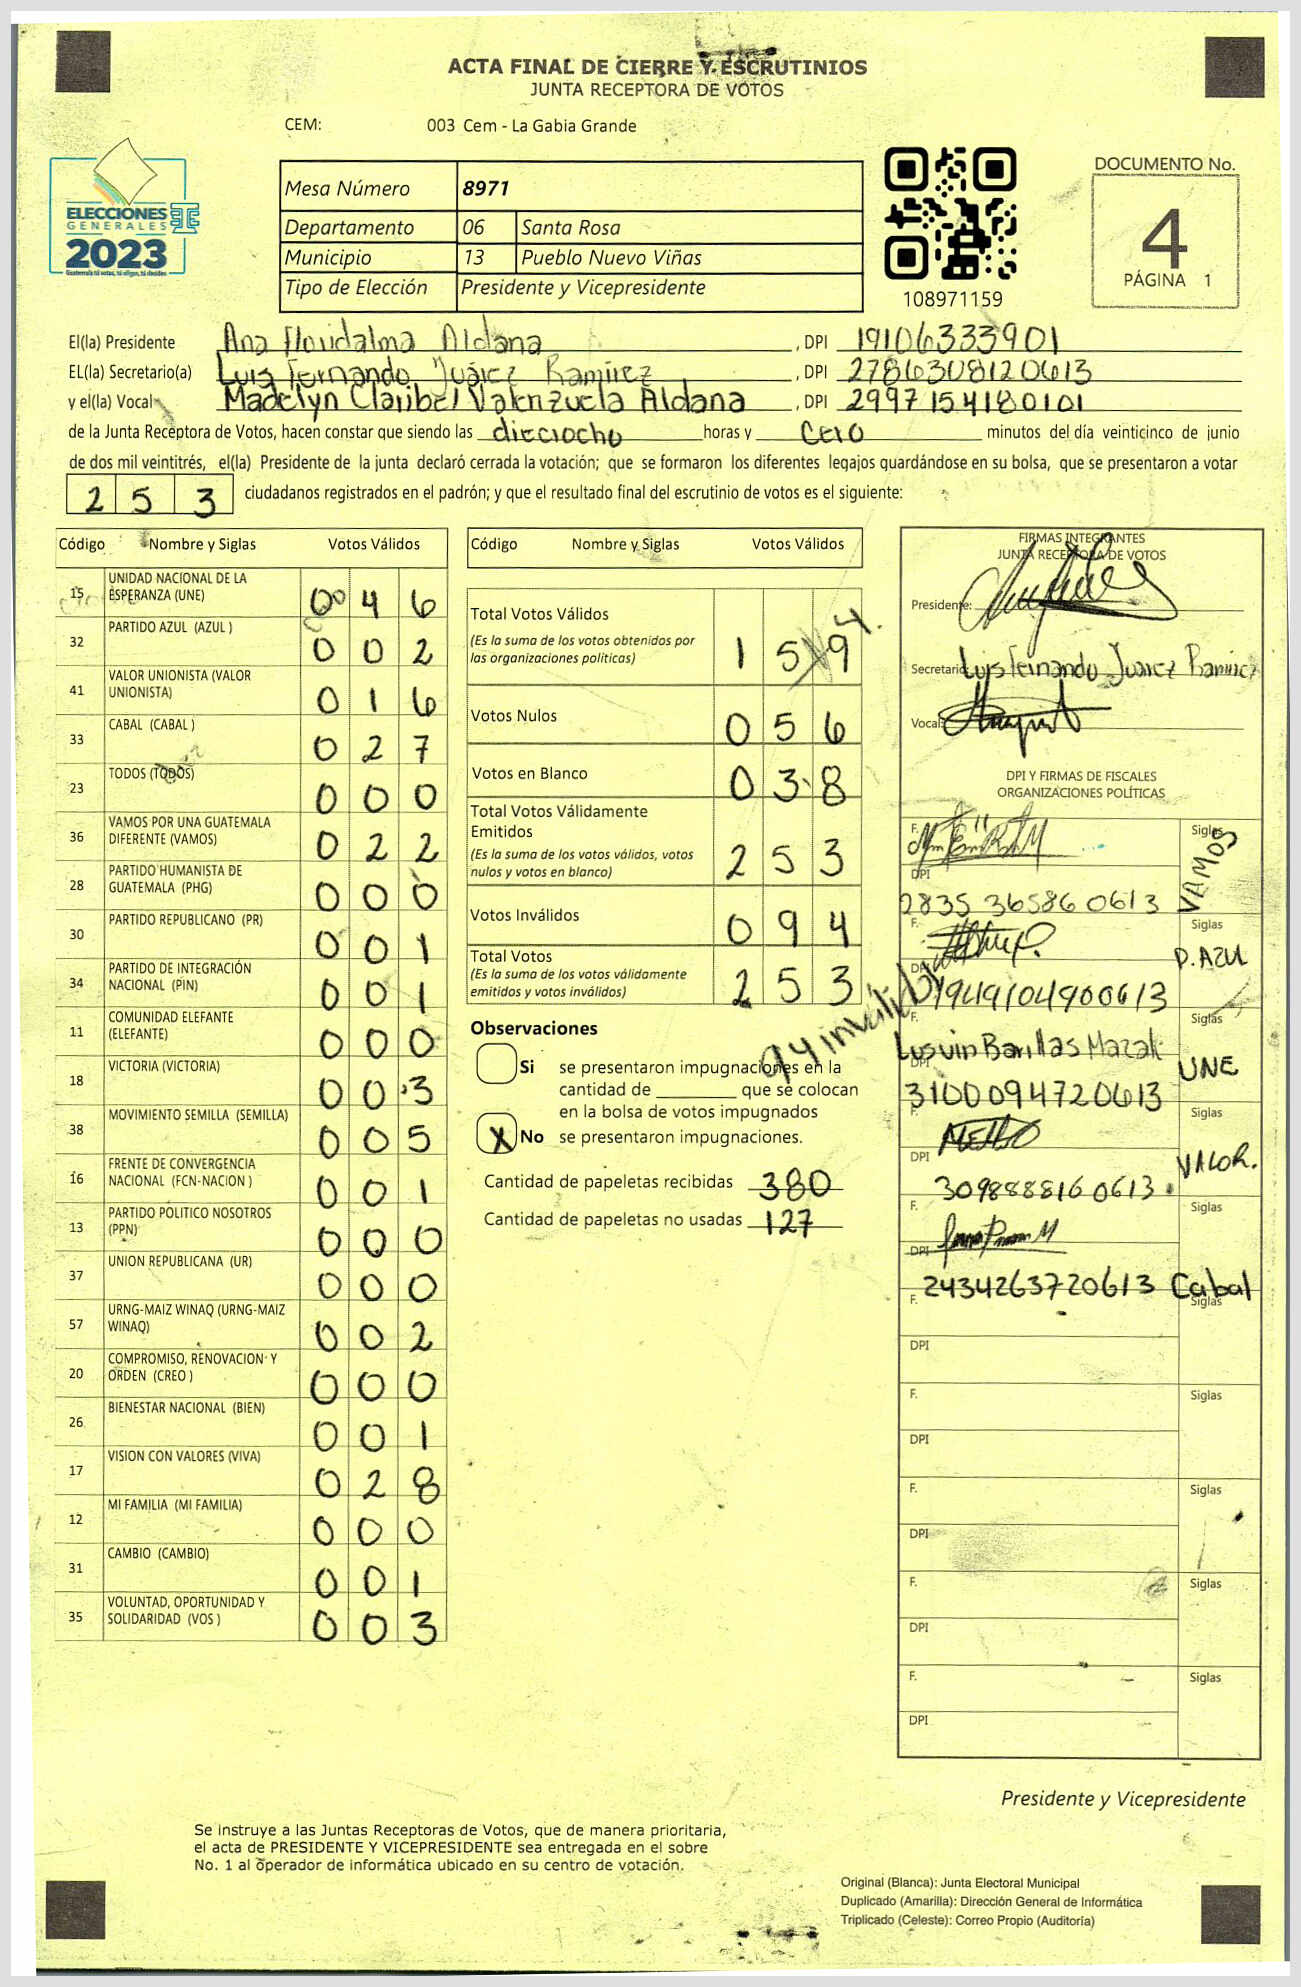 ACTA FINAL DE CIERRE Y ESCRUTINIOS
JUNTA RECEPTORA DE VOTOS
CEM: 003 Cem - La Gabia Grande
ELECCIONES
GENERALES
2023
Guatemala tú votas, tú eliges, tú decides
Mesa Número 8971
Departamento 06 Santa Rosa
Municipio 13 Pueblo Nuevo Viñas
Tipo de Elección Presidente y Vicepresidente
108971159
DOCUMENTO No.
4
PÁGINA 1
El(la) Presidente Ana Floridalma Aldana , DPI 19106333901
EL(la) Secretario(a) Luis Fernando Juárez Ramírez , DPI 2786308120613
y el(la) Vocal Madelyn Claribel Valenzuela Aldana , DPI 2997154180101
de la Junta Receptora de Votos, hacen constar que siendo las dieciocho horas y cero minutos del día veinticinco de junio
de dos mil veintitrés, el(la) Presidente de la junta declaró cerrada la votación; que se formaron los diferentes legajos quardándose en su bolsa, que se presentaron a votar
2 5 3 ciudadanos registrados en el padrón; y que el resultado final del escrutinio de votos es el siguiente:
Código Nombre y Siglas Votos Válidos
15 UNIDAD NACIONAL DE LA ESPERANZA (UNE) 0 4 6
32 PARTIDO AZUL (AZUL ) 0 0 2
41 VALOR UNIONISTA (VALOR UNIONISTA) 0 1 6
33 CABAL (CABAL ) 0 2 7
23 TODOS (TODOS) 0 0 0
36 VAMOS POR UNA GUATEMALA DIFERENTE (VAMOS) 0 2 2
28 PARTIDO HUMANISTA DE GUATEMALA (PHG) 0 0 0
30 PARTIDO REPUBLICANO (PR) 0 0 1
34 PARTIDO DE INTEGRACIÓN NACIONAL (PIN) 0 0 1
11 COMUNIDAD ELEFANTE (ELEFANTE) 0 0 0
18 VICTORIA (VICTORIA) 0 0 3
38 MOVIMIENTO SEMILLA (SEMILLA) 0 0 5
16 FRENTE DE CONVERGENCIA NACIONAL (FCN-NACION ) 0 0 1
13 PARTIDO POLITICO NOSOTROS (PPN) 0 0 0
37 UNION REPUBLICANA (UR) 0 0 0
57 URNG-MAIZ WINAQ (URNG-MAIZ WINAQ) 0 0 2
20 COMPROMISO, RENOVACION Y ORDEN (CREO ) 0 0 0
26 BIENESTAR NACIONAL (BIEN) 0 0 1
17 VISION CON VALORES (VIVA) 0 2 8
12 MI FAMILIA (MI FAMILIA) 0 0 0
31 CAMBIO (CAMBIO) 0 0 1
35 VOLUNTAD, OPORTUNIDAD Y SOLIDARIDAD (VOS ) 0 0 3
Código Nombre y Siglas Votos Válidos
Total Votos Válidos 1 5 9
(Es la suma de los votos obtenidos por
las organizaciones politicas)
Votos Nulos 0 5 6
Votos en Blanco 0 3 8
Total Votos Válidamente
Emitidos
(Es la suma de los votos válidos, votos
nulos y votos en blanco) 2 5 3
Votos Inválidos 0 9 4
Total Votos
(Es la suma de los votos válidamente
emitidos y votos inválidos) 2 5 3
94 inválido
Observaciones
Si se presentaron impugnaciones en la
cantidad de ________ que se colocan
en la bolsa de votos impugnados
X No se presentaron impugnaciones.
Cantidad de papeletas recibidas 380
Cantidad de papeletas no usadas 127
FIRMAS INTEGRANTES
JUNTA RECEPTORA DE VOTOS
Presidente:
Secretario: Luis Fernando Juarez Ramírez
Vocal:
DPI Y FIRMAS DE FISCALES
ORGANIZACIONES POLÍTICAS
F. Siglas VAMOS
DPI 2835 36586 0613
F. Siglas P. AZUL
DPI 1949104900613
F. Lusvin Barillas Mazak Siglas UNE
DPI 3100094720613
F. Siglas VALOR.
DPI 3098888160613
F. Siglas Cabal
DPI 2434263720613
F. Siglas
DPI
F. Siglas
DPI
F. Siglas
DPI
F. Siglas
DPI
F. Siglas
DPI
Presidente y Vicepresidente
Se instruye a las Juntas Receptoras de Votos, que de manera prioritaria,
el acta de PRESIDENTE Y VICEPRESIDENTE sea entregada en el sobre
No. 1 al operador de informática ubicado en su centro de votación.
Original (Blanca): Junta Electoral Municipal
Duplicado (Amarilla): Dirección General de Informática
Triplicado (Celeste): Correo Propio (Auditoría)